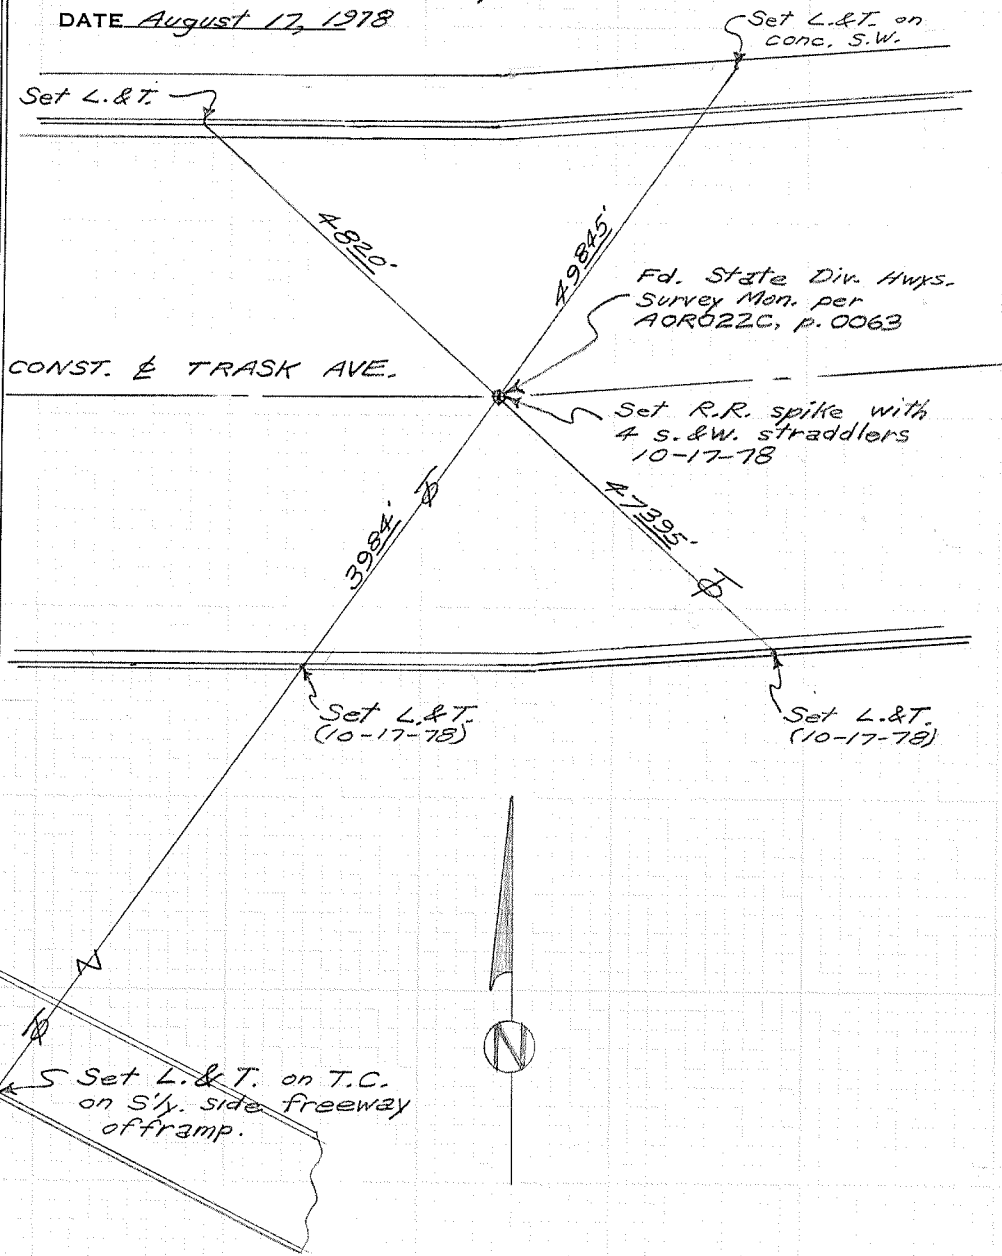 DATE August 17, 1978
Set L.&T. on
conc. S.W.
Set L.&T.
4820'
49845'
Fd. State Div. Hwys.
Survey Mon. per
AOR022C, p. 0063
CONST. ℄ TRASK AVE.
Set R.R. spike with
4 s.&w. straddlers
10-17-78
3984'
47395'
Set L.&T.
(10-17-78)
Set L.&T.
(10-17-78)
N
Set L.&T. on T.C.
on S'ly. side freeway
offramp.